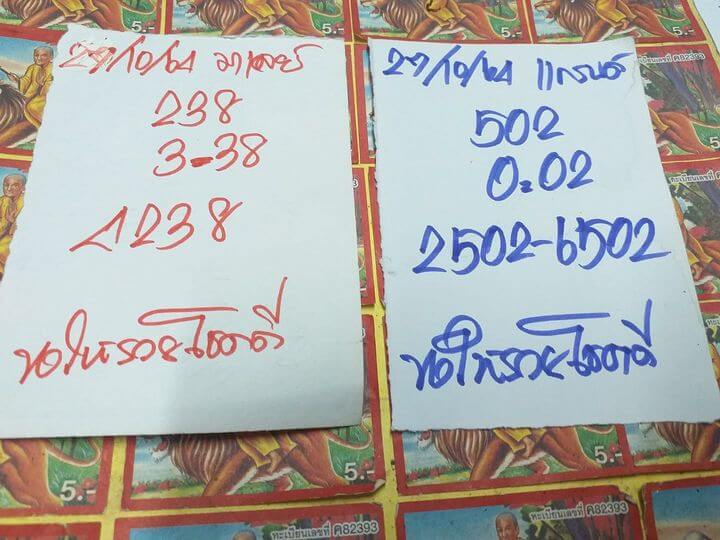 27/10/64 มาเลย์
238
3-38
1238
ขอให้รวยโชคดี
27/10/64 แกรนด์
502
0-02
2502-6502
ขอให้รวยโชคดี
5.-
5.-
ทะเบียนเลขที่ ค82393
5.-
5.-
5.-
ทะเบียนเลขที่ ค82393
ทะเบียนเลขที่ ค82393